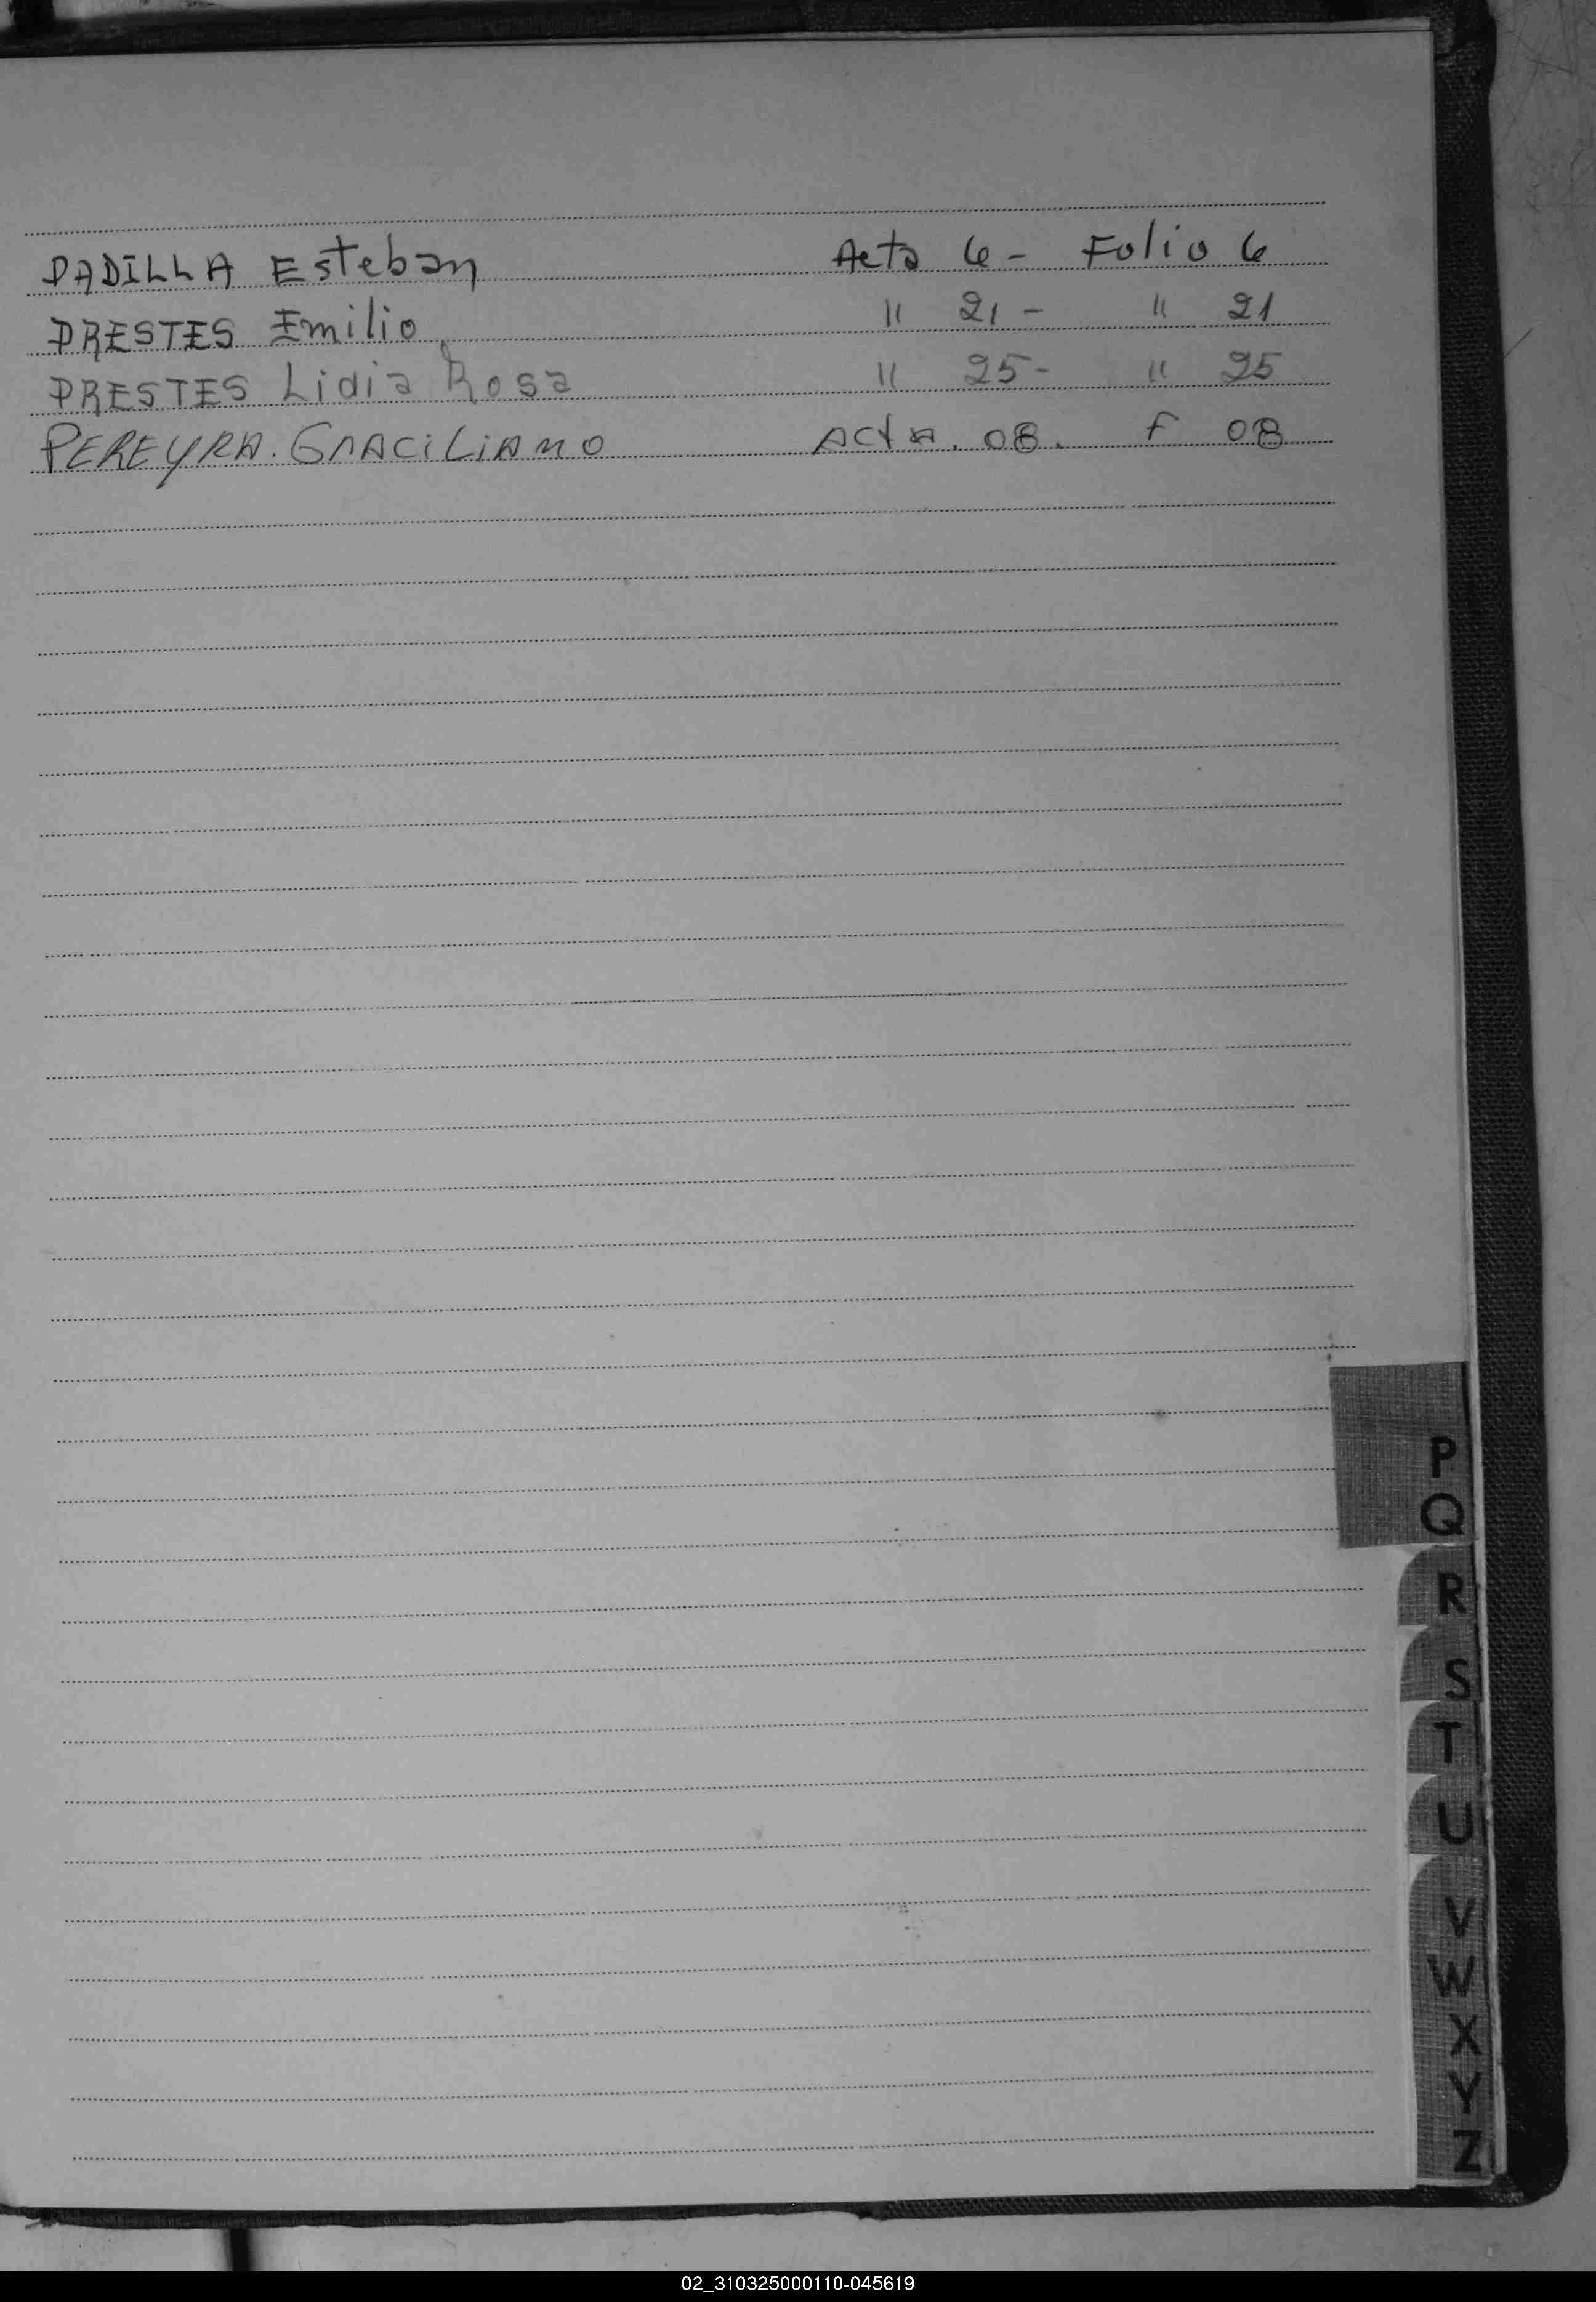 PADILLA Esteban Acta 6 - Folio 6
PRESTES Emilio " 21 - " 21
PRESTES Lidia Rosa " 25 - " 25
PEREYRA. GRACILIANO ACTA. 08. F 08
P
Q
R
S
T
U
V
W
X
Y
Z
02_310325000110-045619